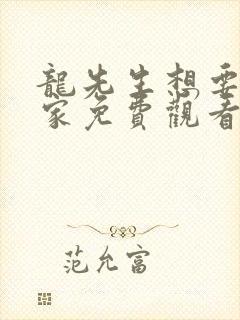 龍先生想要
家免費觀看
范允富